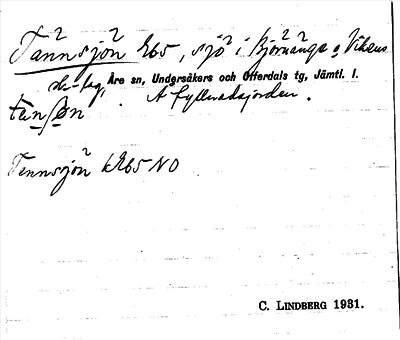 Tännsjön 265, sjö i Björnänge o. Vikens
sk-lag, Åre sn, Undersåkers och Offerdals tg, Jämtl. l.
A fyllnadsjorden.
Tennsjön 265 NO
C. LINDBERG 1931.